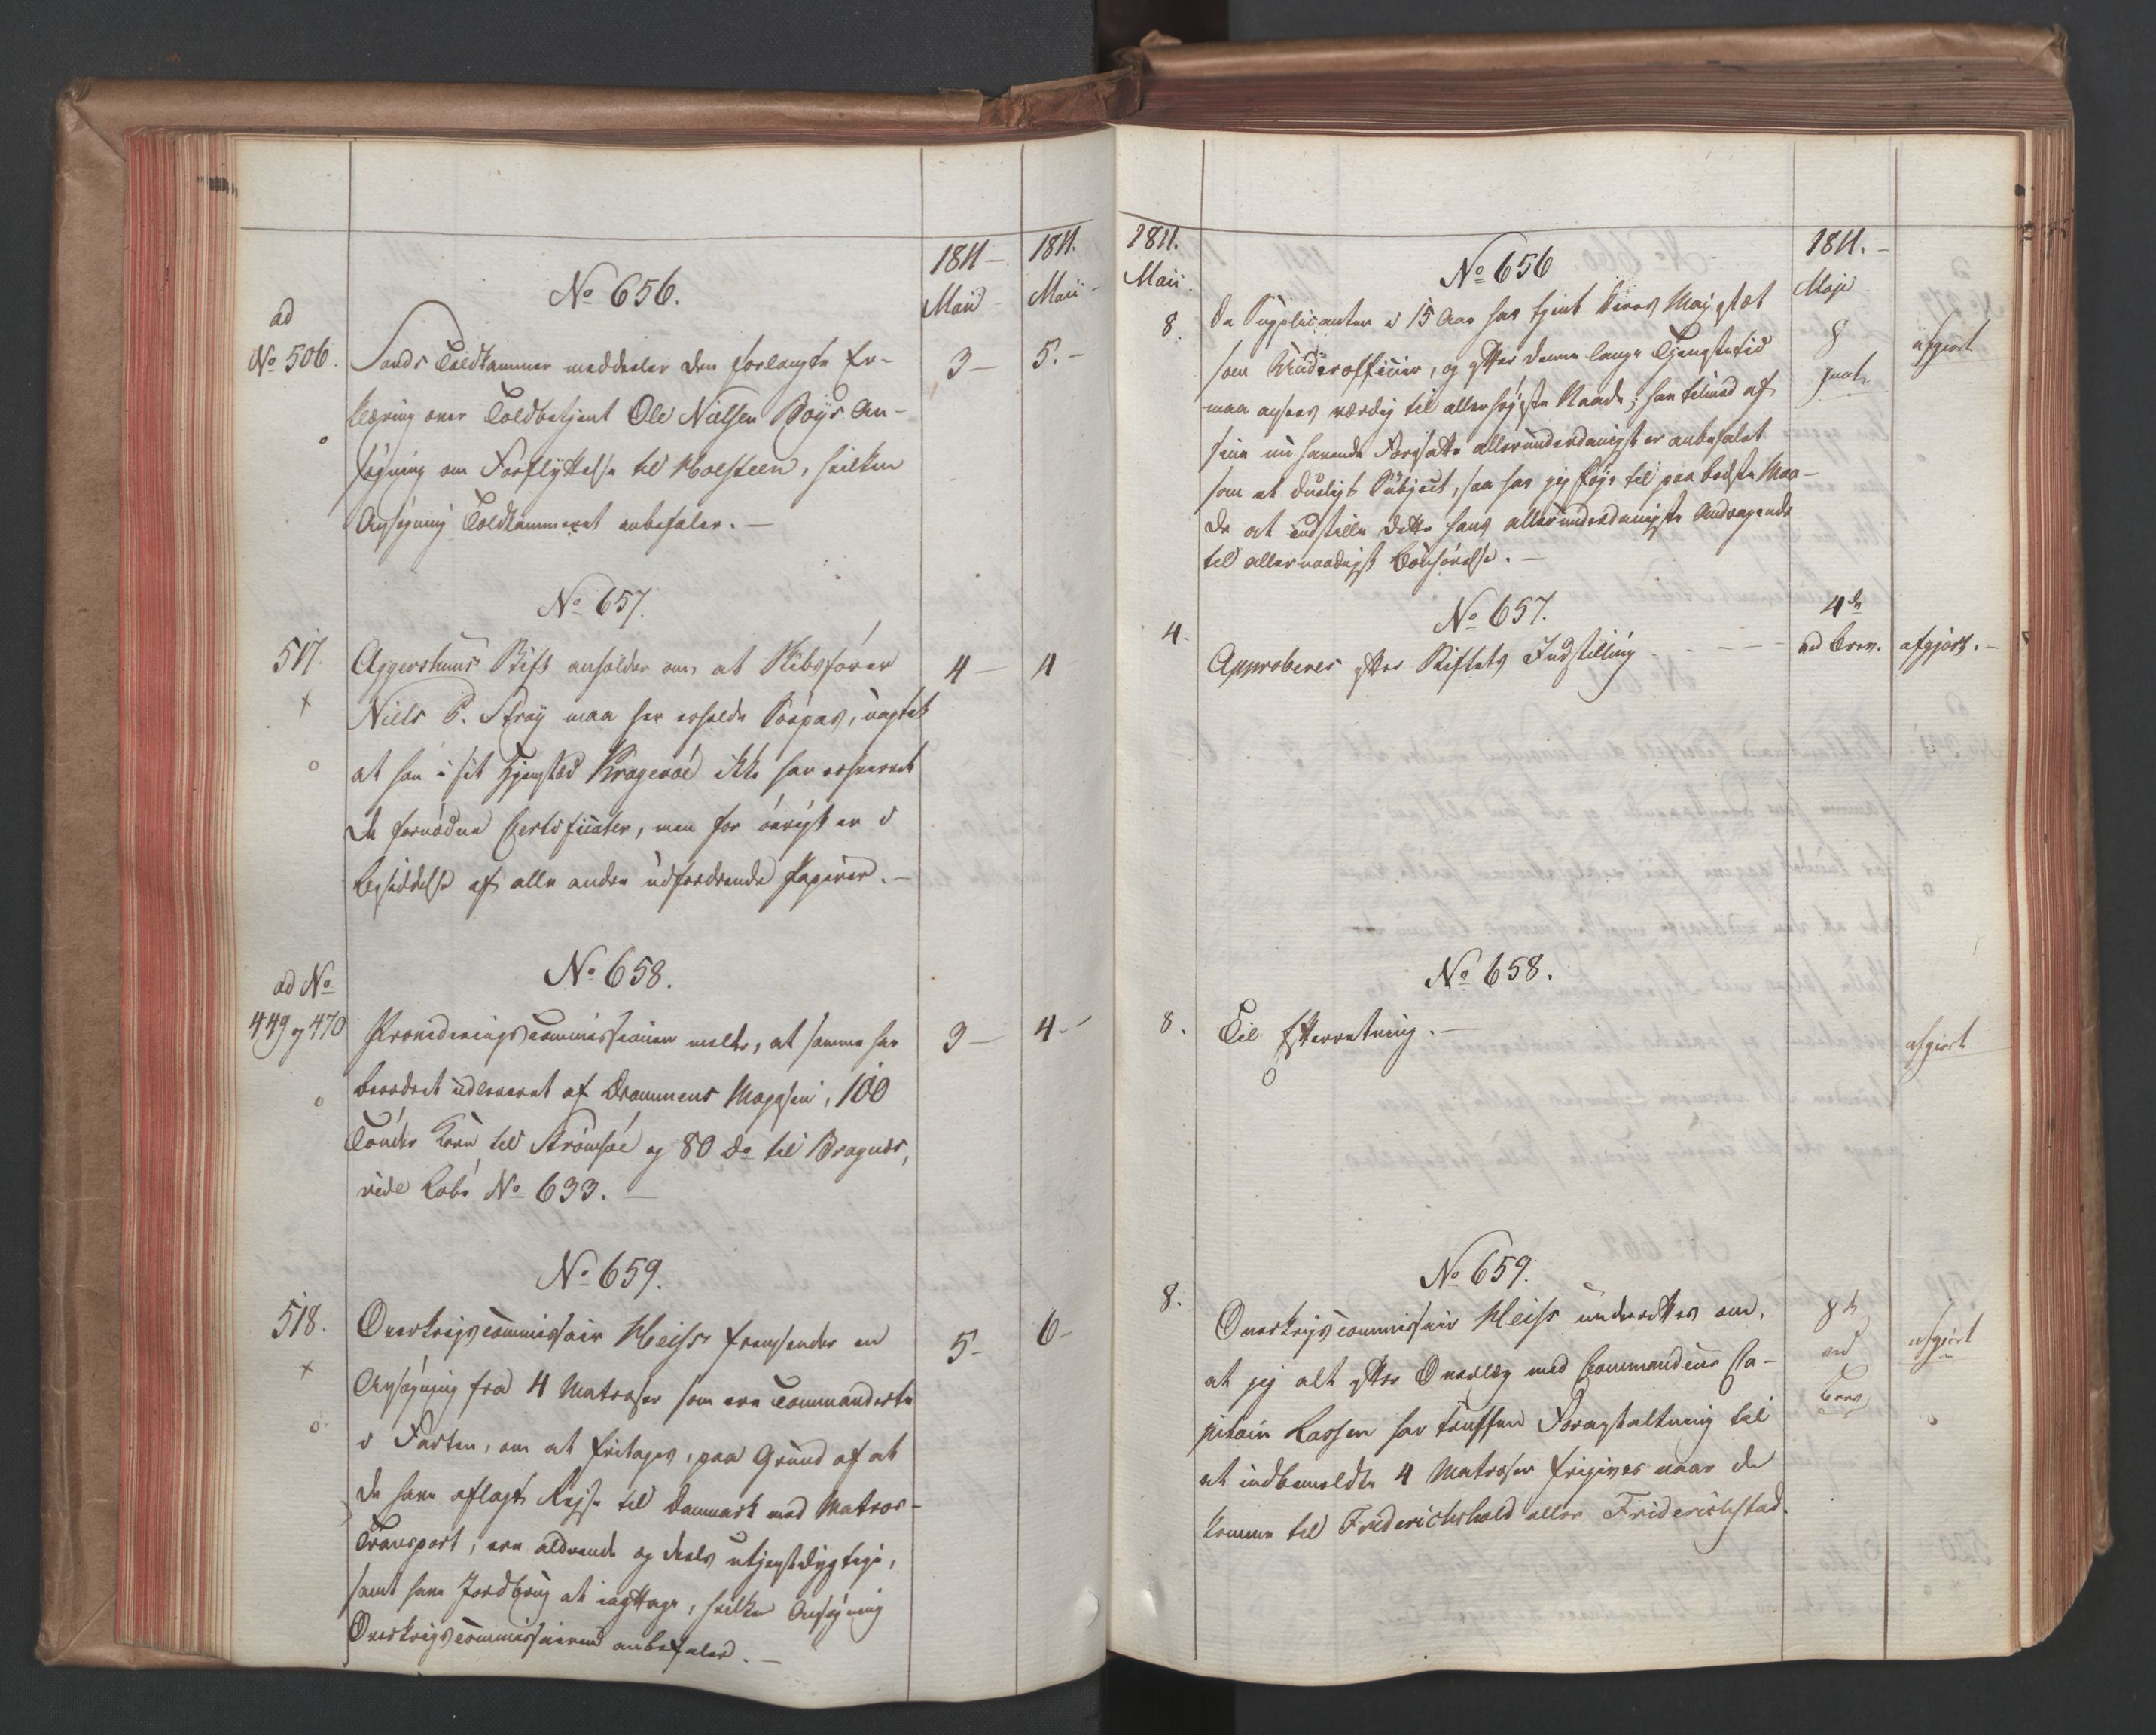 1811 –
Maii
1811.
Maii –
No 656.
ad
No 506.
Sands Toldkammer meddeeler den forlangte Er-
klæring over Toldbetjent Ole Nielsen Boys An-
søgning om Forflyttelse til Holsteen, hvilken
Ansøgning Toldkammeret anbefaler. –
3 –
5. –
No 657.
517.
Aggershuus Stift anholder om, at Skibsfører
Niels P. Strøy maa her erholde Søepas, uagtet
at han i sit Hjemsted Kragerøe ikke har erhvervet
de fornødne Certificater, men for øvrigt er i
Besiddelse af alle andre udfordrende Papirer. –
4 –
4
No 658.
ad No
449 og 470
Provideringscommissionen melder, at samme har
beordret udleveret af Drammens Magasin, 100
Tønder Korn til Strømsøe og 80 do til Bragnes,
vide Lobe No 633. –
3 –
4 –
No 659.
518.
Overkrigscommissair Heiss fremsender en
Ansøgning fra 4 Matroser som ere Commanderte
i Farten, om at fritages, paa Grund af at
de have aflagt Rejse til Danmark med Matros-
Transport, ere aldrende og deels utjenstdygtige,
samt have Jordbrug at iagttage, hvilken Ansøgning
Overkrigscommissairen anbefaler. –
5 –
6 –
1811.
Maii.
1811. –
Maji
No 656
8.
Da Supplicanten i 15 Aar har tjent Deres Majestæt
som Underofficier, og efter denne lange Tjenestetid
maa ansees værdig til allerhøjeste Naade; han tilmed af
sine nu havende Foresatte allerunderdanigst er anbefalet
som et dueligt Subject, saa har jeg føje til paa bedste Maa-
de at indstille dette hans allerunderdanigste Andragende
til allernaadigst Bønhørelse. –
8
afgiort
No 657.
4.
Approberes efter Stiftets Indstilling
4de
ved Brev.
afgjort. –
No 658.
8.
Til Efterretning. –
afgiort
No 659.
8.
Overkrigscommissair Heiss underrettes om,
at jeg alt efter Overlæg med Commandeur Ca-
pitain Lassen har truffen Foranstaltning til
at indbemeldte 4 Matroser frigives naar de
komme til Friderichshald eller Friderichstad.
8de
ved
Brev
afgiort